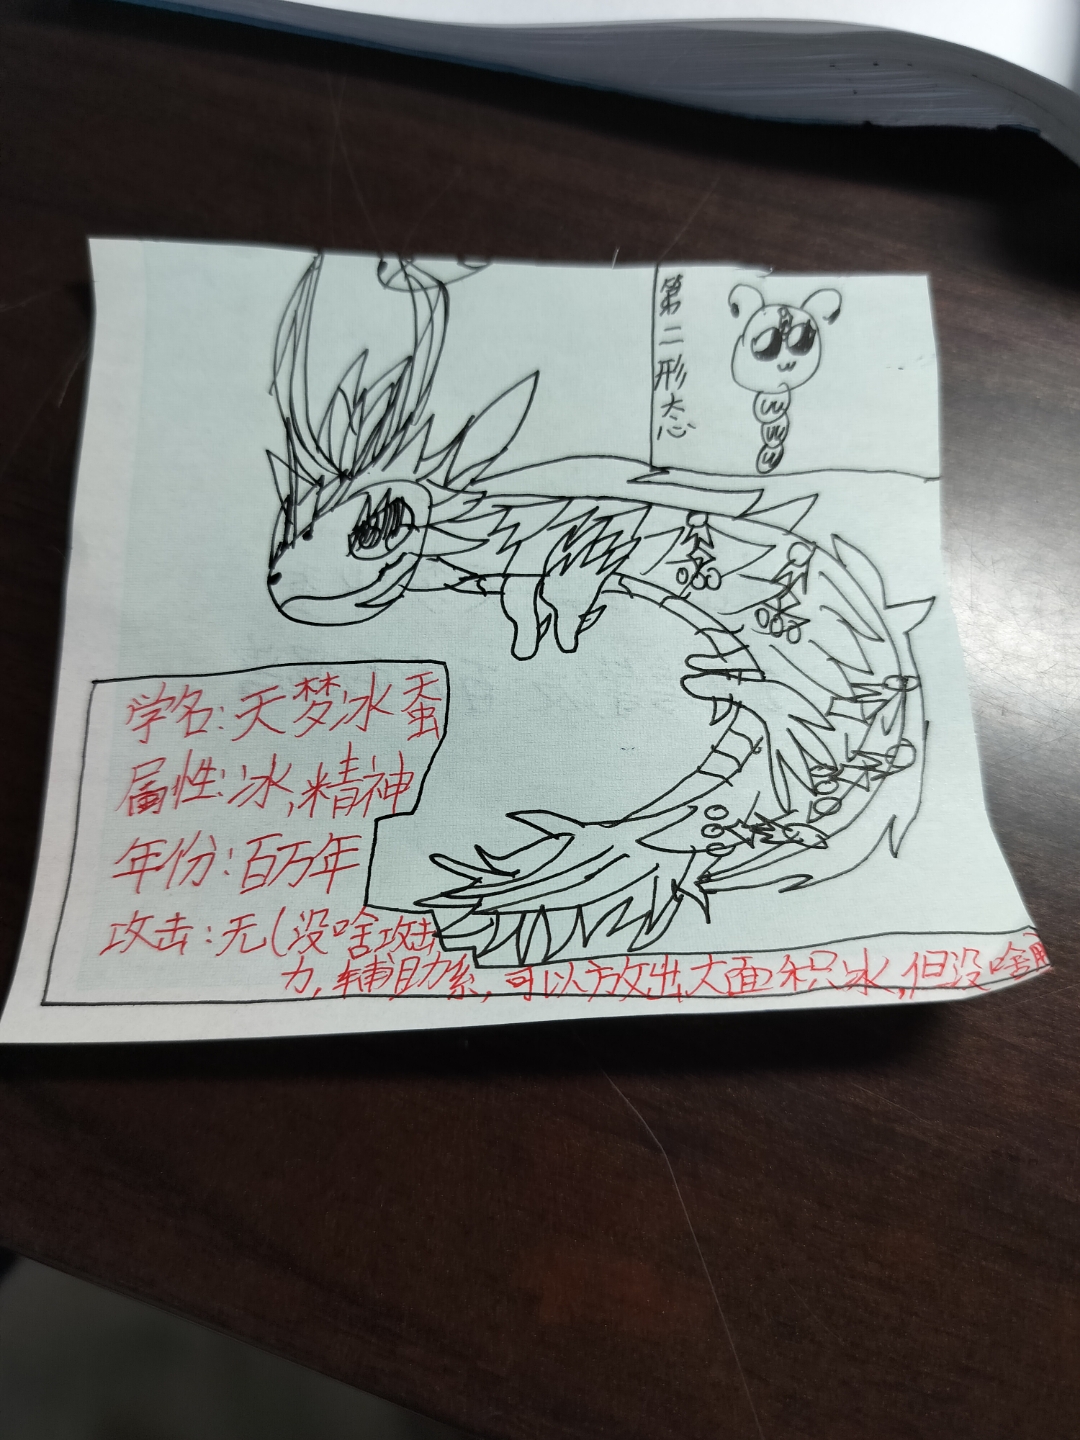 第二形态
学名:天梦冰蚕
属性:冰,精神
年份:百万年
攻击:无(没啥攻击
力,辅助系,可以放出大面积冰,但没啥